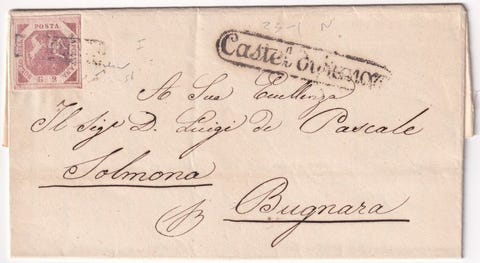 25-1 N.
POSTA
G. 2
Castel di Sangro
A Sua Eccellenza
Il Sigr D. Luigi de Pascale
Solmona
Bugnara